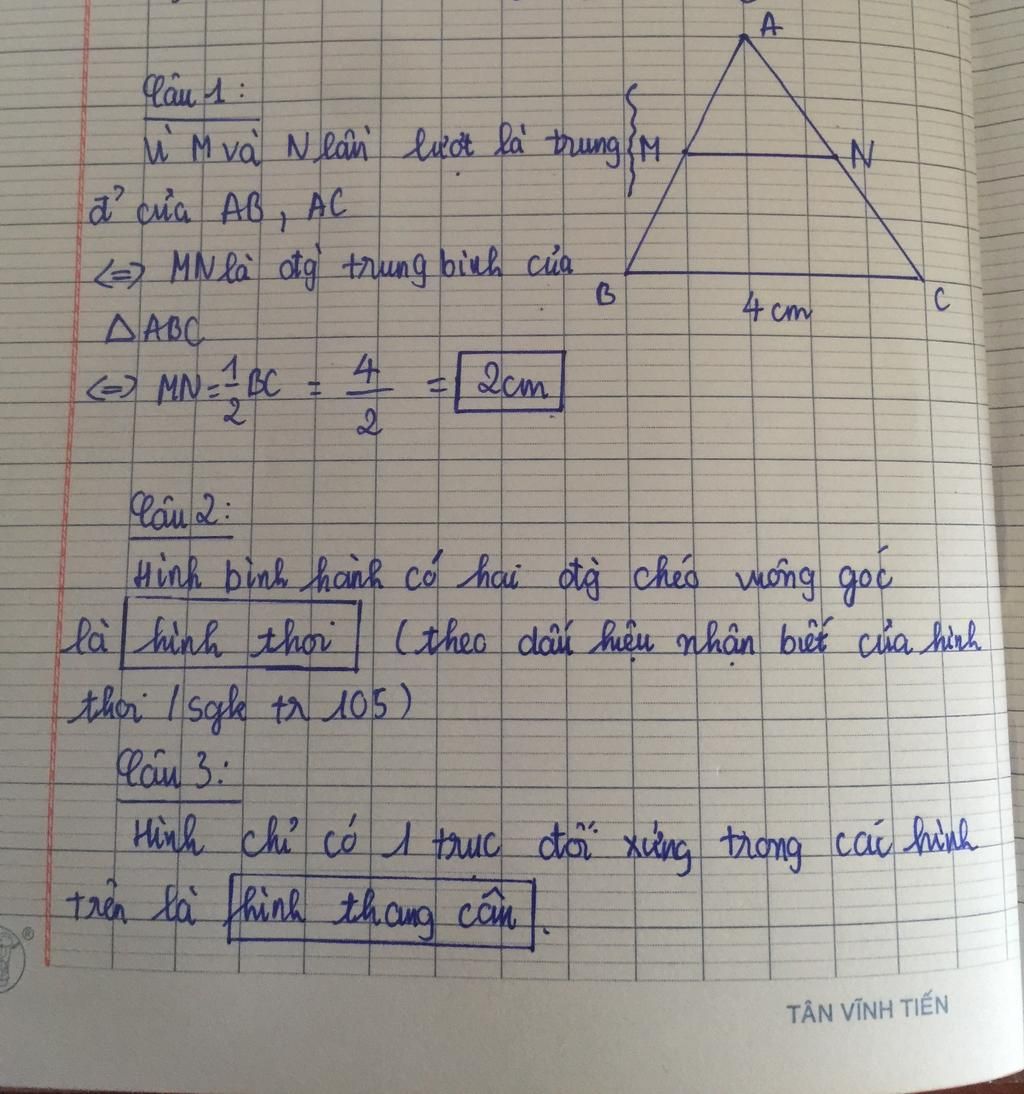 A
Câu 1:
Vì M và N lần lượt là trung
M
N
đ' của AB, AC
<=> MN là đtg trung bình của
B
C
4 cm
△ ABC
<=> MN = 1/2 BC = 4/2 = 2cm
Câu 2:
Hình bình hành có hai đtg chéo vuông góc
là hình thoi (theo dấu hiệu nhận biết của hình
thoi / sgk tr 105)
Câu 3:
Hình chỉ có 1 trục đối xứng trong các hình
trên là hình thang cân.
®
TÂN VĨNH TIẾN